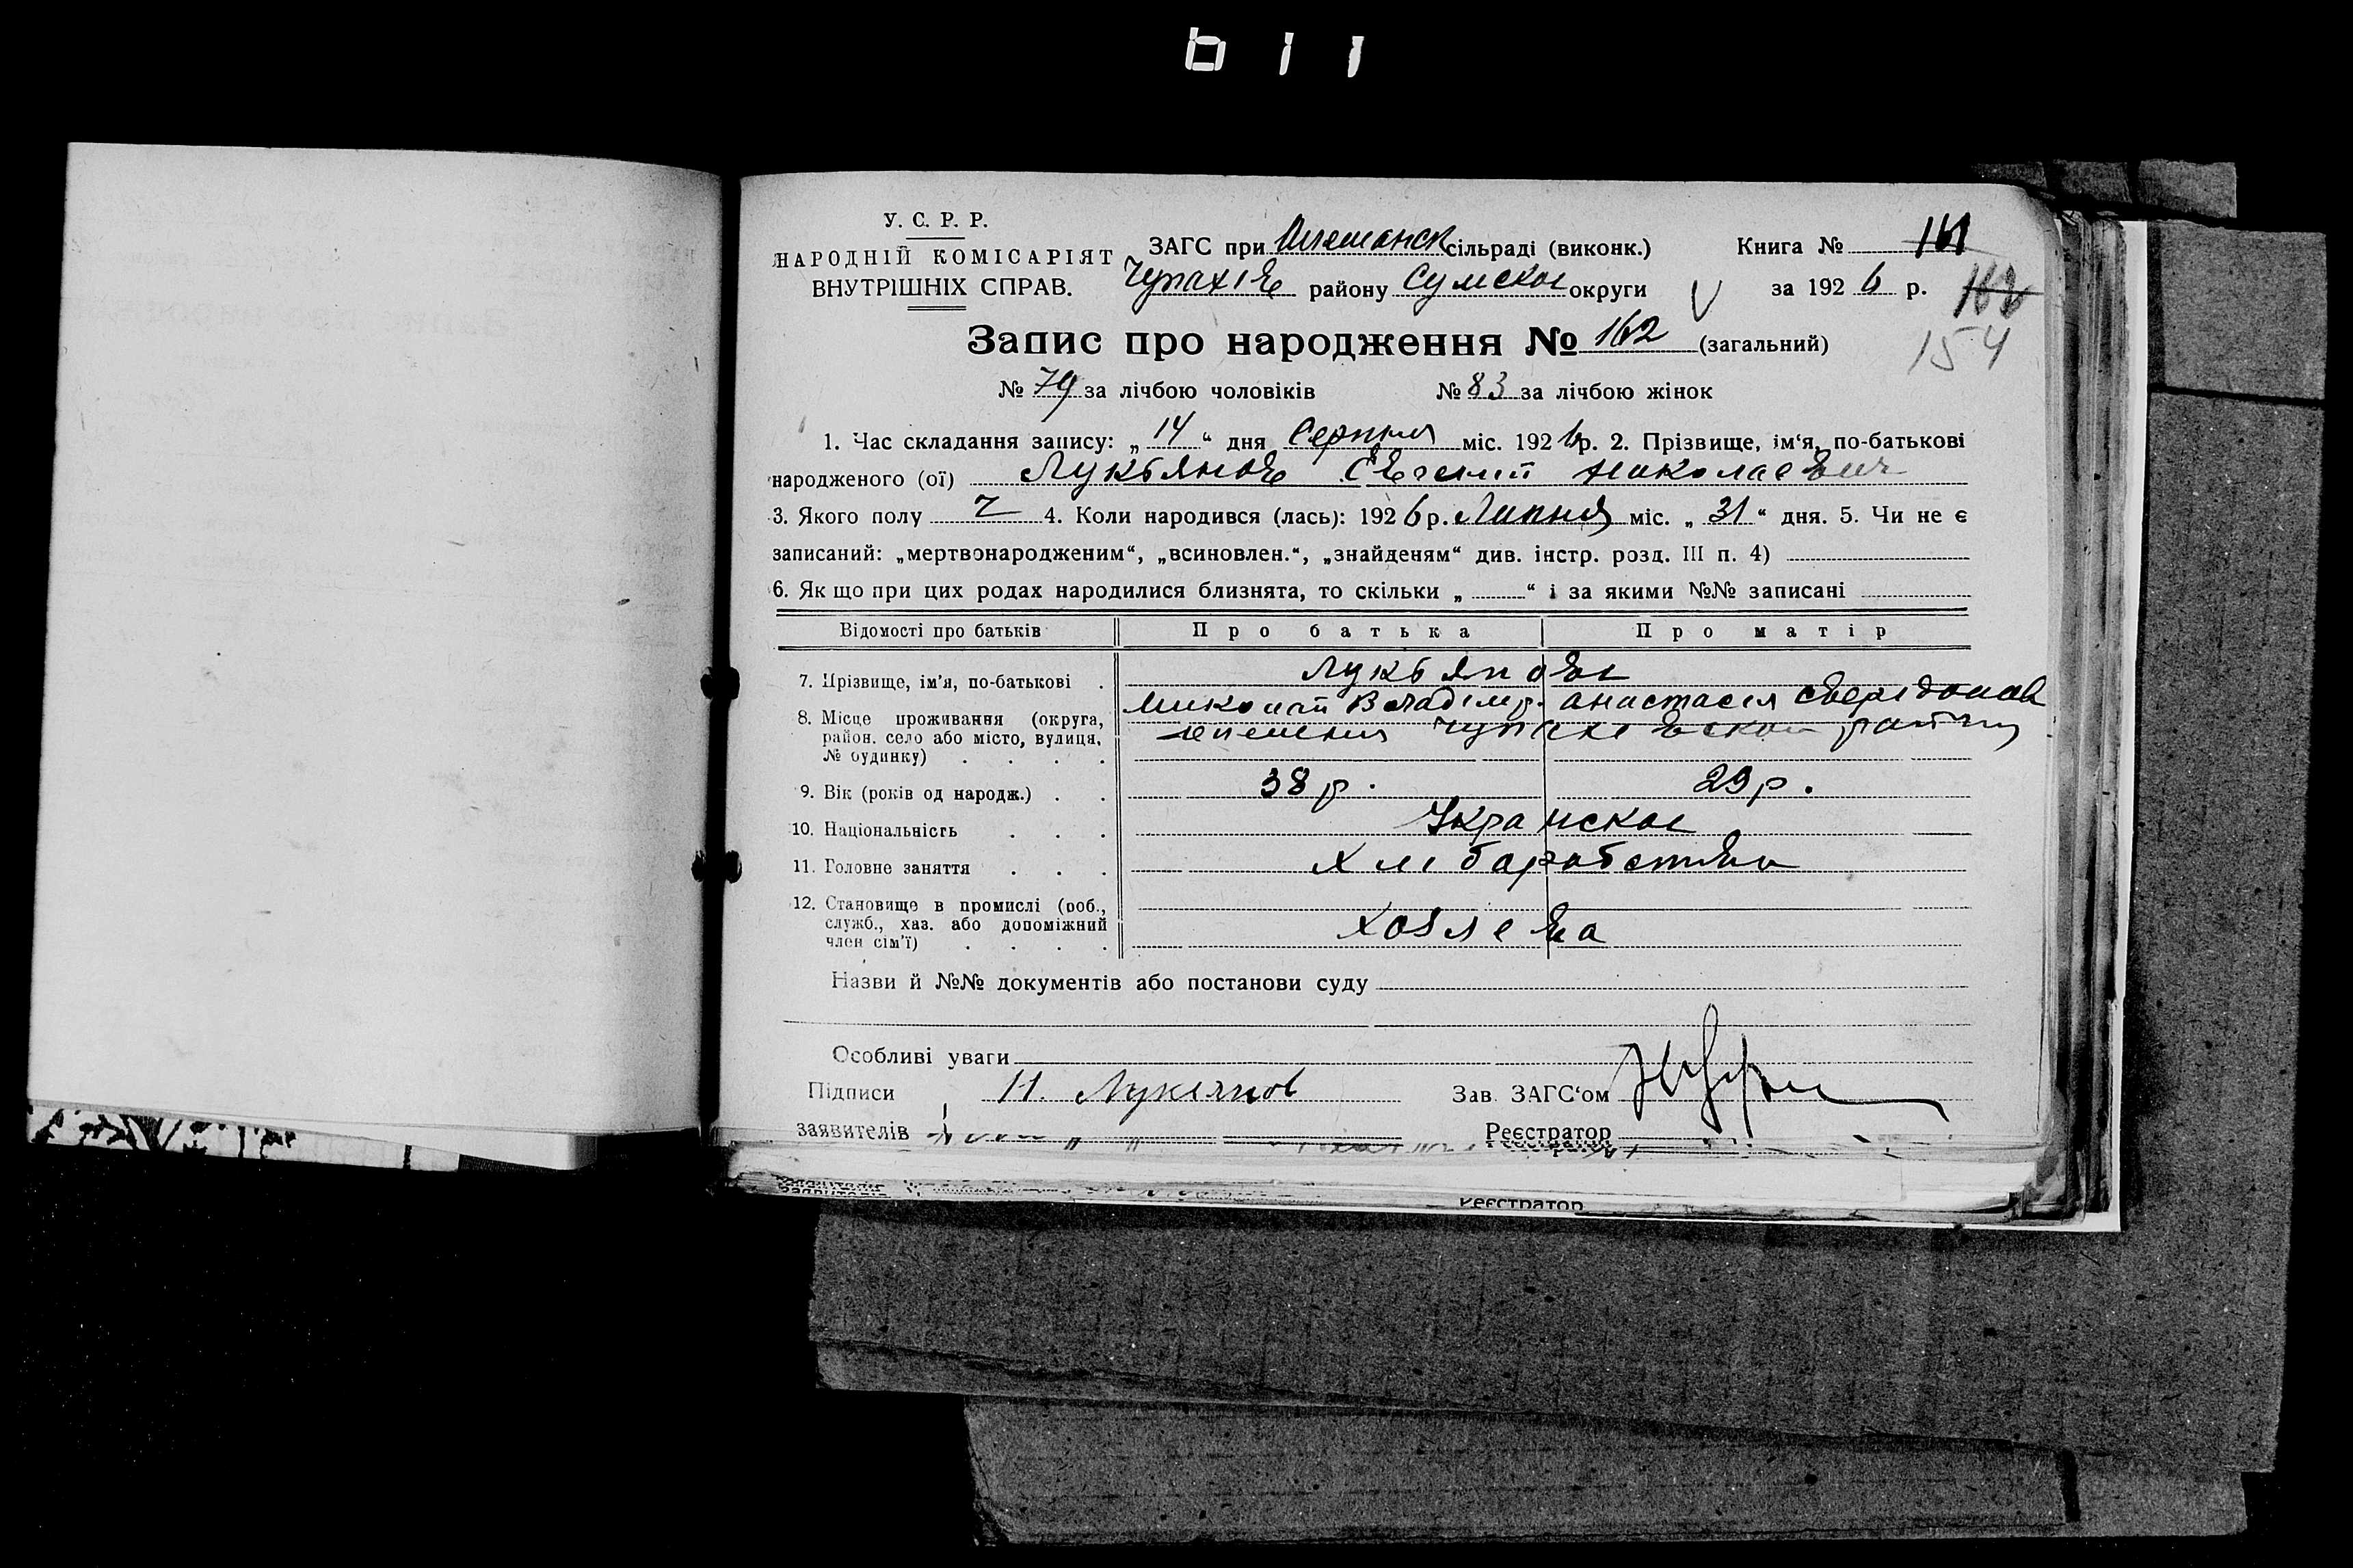 611
У. С. Р. Р.
НАРОДНІЙ КОМІСАРІЯТ
ВНУТРІШНІХ СПРАВ.
ЗАГС при сільраді (виконк.)
Чупахів району Сумскої округи
Книга № 161
за 1926 р. 162
154
V
Запис про народження № 162 (загальний)
№ 79 за лічбою чоловіків № 83 за лічбою жінок
1. Час складання запису: „14“ дня Серпня міс. 1926 р. 2. Прізвище, ім‘я, по-батькові
народженого (ої) Лукьянов Євгений Николаевич
3. Якого полу Ч 4. Коли народився (лась): 1926 р. Липня міс. „31“ дня. 5. Чи не є
записаний: „мертвонародженим“, „всиновлен.“, „знайденям“ див. інстр. розд. III п. 4)
6. Як що при цих родах народилися близнята, то скільки „ “ і за якими №№ записані
Відомості про батьків Про батька Про матір
7. Прізвище, ім'я, по-батькові . Лукьянови
Миколай Владімір. Анастасія
8. Місце проживання (округа,
район, село або місто, вулиця,
№ будинку) . . . .
9. Вік (років од народж.) . . 38 р. 29 р.
10. Національність . . . Украінскої
11. Головне заняття . . . Хлібаробства
12. Становище в промислі (роб.,
служб., хаз. або допоміжний
член сім'ї) . . . . Хозяева
Назви й №№ документів або постанови суду
Особливі уваги
Підписи Н. Лукянов Зав. ЗАГС‘ом
заявителів Реєстратор
Реєстратор